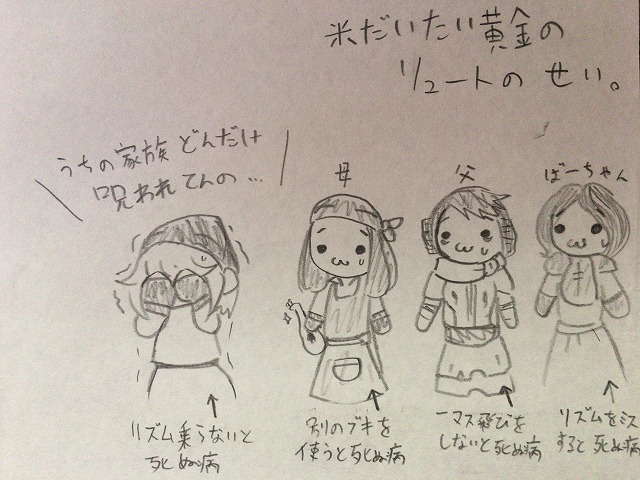 米だいたい黄金の
リュートの せい。
うちの家族 どんだけ
呪われてんの…
母
父
ばーちゃん
リズム乗らないと
死ぬ病
別のブキを
使うと死ぬ病
一マス飛びを
しないと死ぬ病
リズムをミス
すると死ぬ病